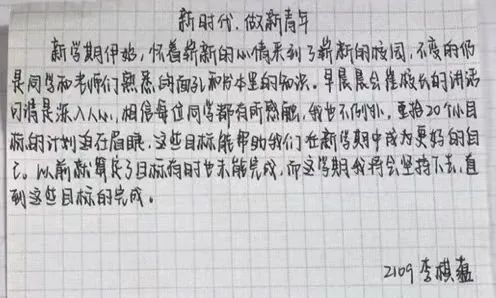 新时代.做新青年
新学期伊始,怀着崭新的心情来到了崭新的校园,不变的仍
是同学和老师们熟悉的面孔和书本里的知识。早晨晨会崔校长的讲话
可谓是深入人心,相信每位同学都有所感触,我也不例外,重拾20个小目
标的计划迫在眉睫,这些目标能帮助我们在新学期中成为更好的自
己。以前就算定了目标有时也未能完成,而这学期我将会坚持下去,直
到这些目标的完成。
2109 李棋蕴